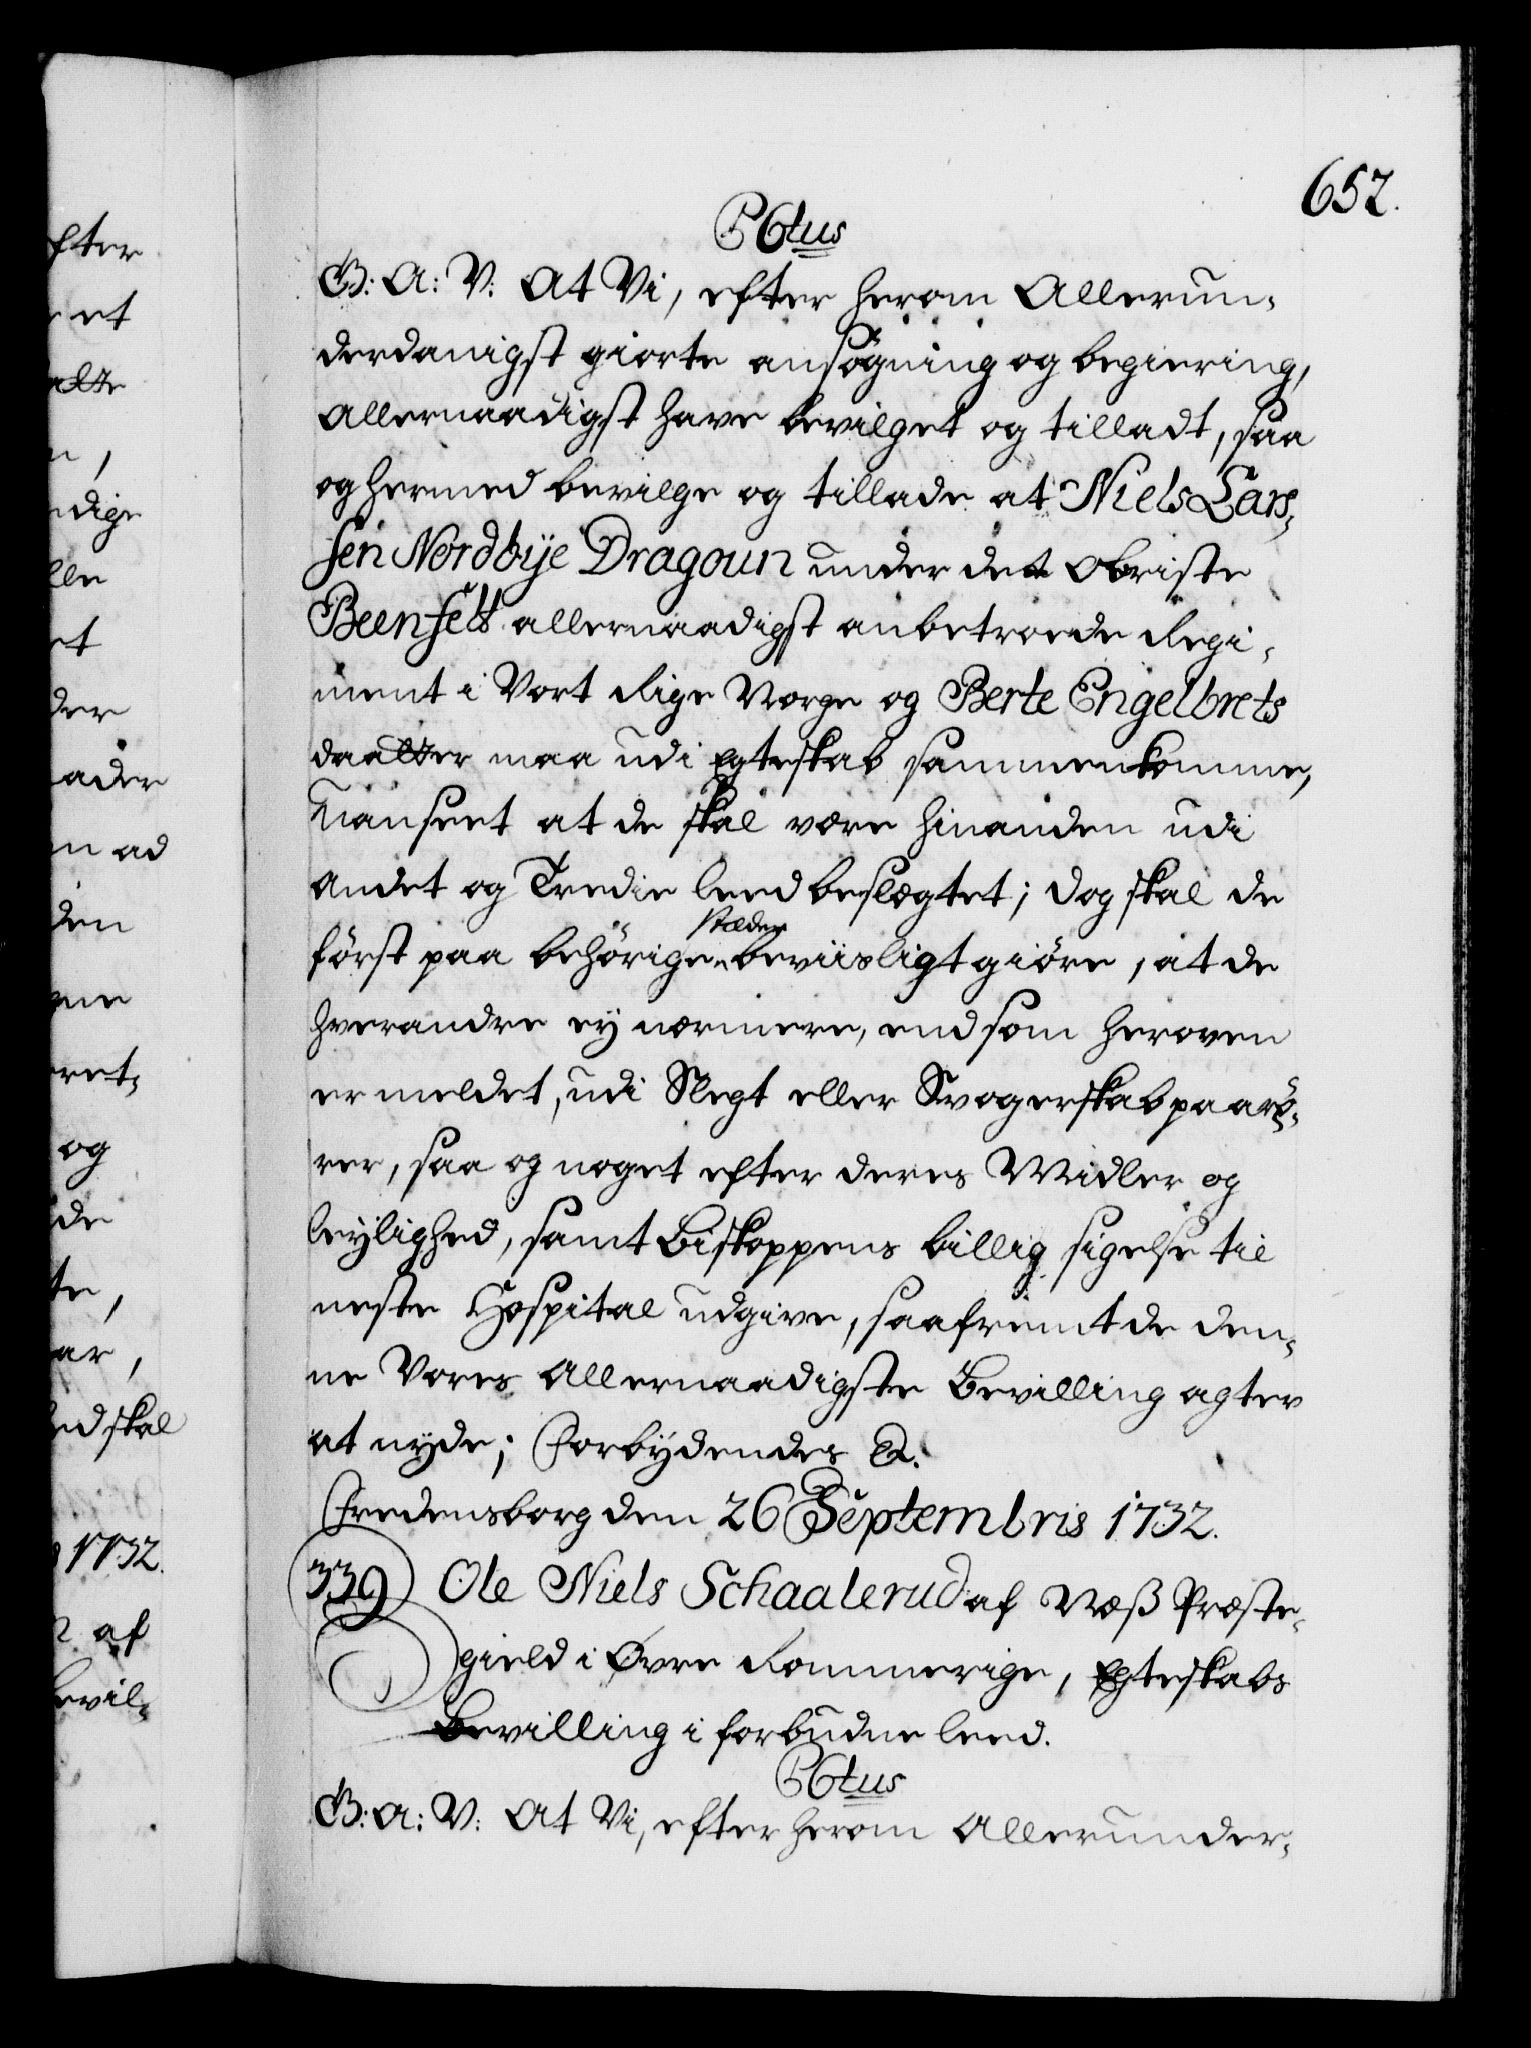 652.
P C6tus
G: A: V: At Vi, efter herom Allerun-
derdanigst giorte ansøgning og begiering,
Allernaadigst have bevilget og tilladt, saa
og hermed bevilge og tillade at Niels Lars-
sen Nordbÿe Dragoun under det Obriste
Beenfelt allernaadigst anbetroede Regi-
ment i Vort Rige Norge og Berte Engelbrets
daatter maa udi Egteskab sammenkomme,
Uanseet at de skal være hinanden udi
andet og Tredie leed beslægtet; dog skal de
först paa behörige stæder beviisligt giöre, at de
hverandre eÿ nærmere, end som heroven
er meldet, udi Slegt eller Svogerskab paarö-
rer, saa og noget efter deres Midler og
leÿlighed, samt Biskoppens billig sigelse til
neste Hospital udgive, saafremt de den-
ne Vores Allernaadigste Bevilling agter
at nÿde; Forbÿdendes &.
Fredensborg den 26 Septembris 1732.
339 Ole Niels Schaalerud af Næss Præste-
gield i Øvre Rommerige, Egteskabs
Bevilling i forbudne leed.
P C6tus
G: A: V: At Vi, efter herom Allerunder-
fter
et
n,
ndige
lle
et
der
ader
n ad
den
ret-
og
de
te,
ar,
ed skal
1732.
af
Bevil-